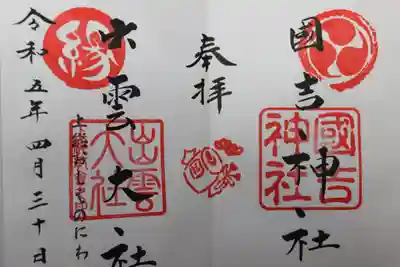 國吉神社
國吉神社
奉拝
縁
出雲大社
出雲大社
令和五年四月三十日